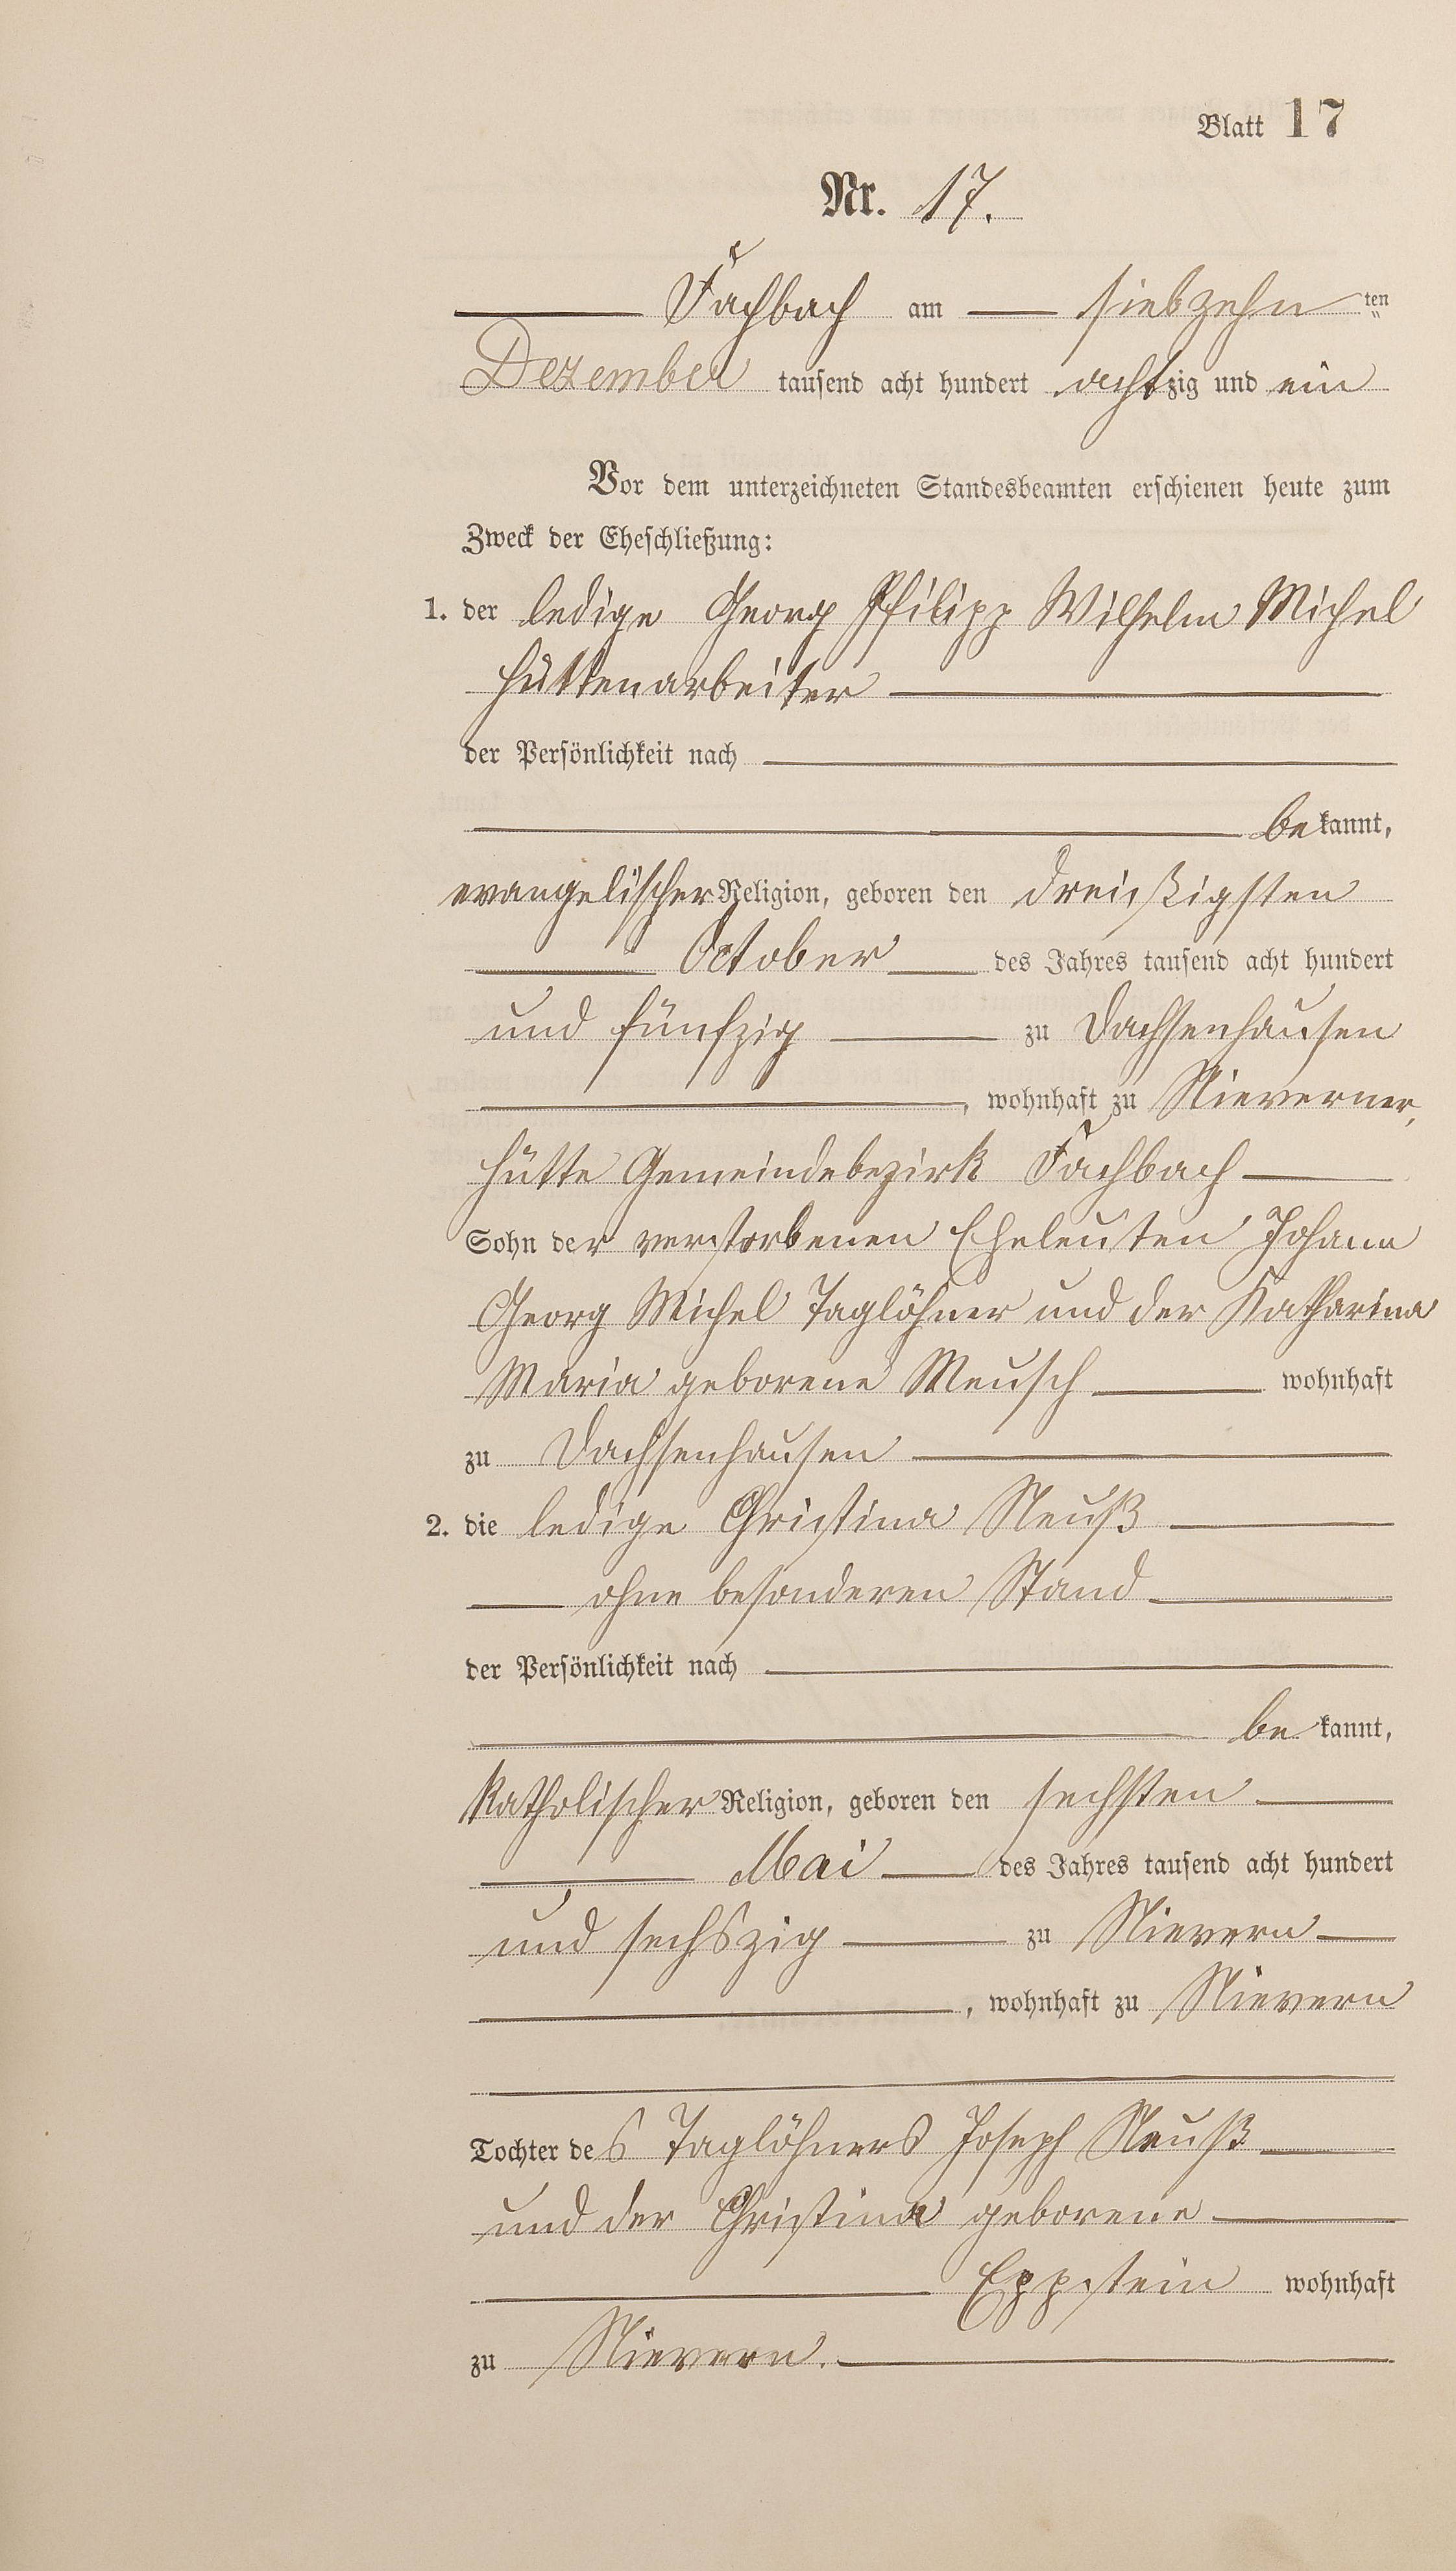 Blatt 17
Nr. 17.
Fachbach am siebzehnten
Dezember tausend acht hundert achtzig und ein
Vor dem unterzeichneten Standesbeamten erschienen heute zum
Zweck der Eheschließung:
1. der ledige Georg Philipp Wilhelm Michel
Hüttenarbeiter
der Persönlichkeit nach
bekannt,
evangelischer Religion, geboren den dreißigsten
October des Jahres tausend acht hundert
und fünfzig zu Dachsenhausen
, wohnhaft zu Nieverner,
Hütte Gemeindebezirk Fachbach
Sohn der verstorbenen Eheleuten Johann
Georg Michel Taglöhner und der Katharina
Maria geborene Meusch wohnhaft
zu Dachsenhausen
2. die ledige Christina Neuß
ohne besonderen Stand
der Persönlichkeit nach
bekannt,
katholischer Religion, geboren den sechsten
Mai des Jahres tausend acht hundert
und sechszig zu Nievern
, wohnhaft zu Nievern
Tochter des Taglöhners Joseph Neuß
und der Christina geborene
Eppstein wohnhaft
zu Nievern.